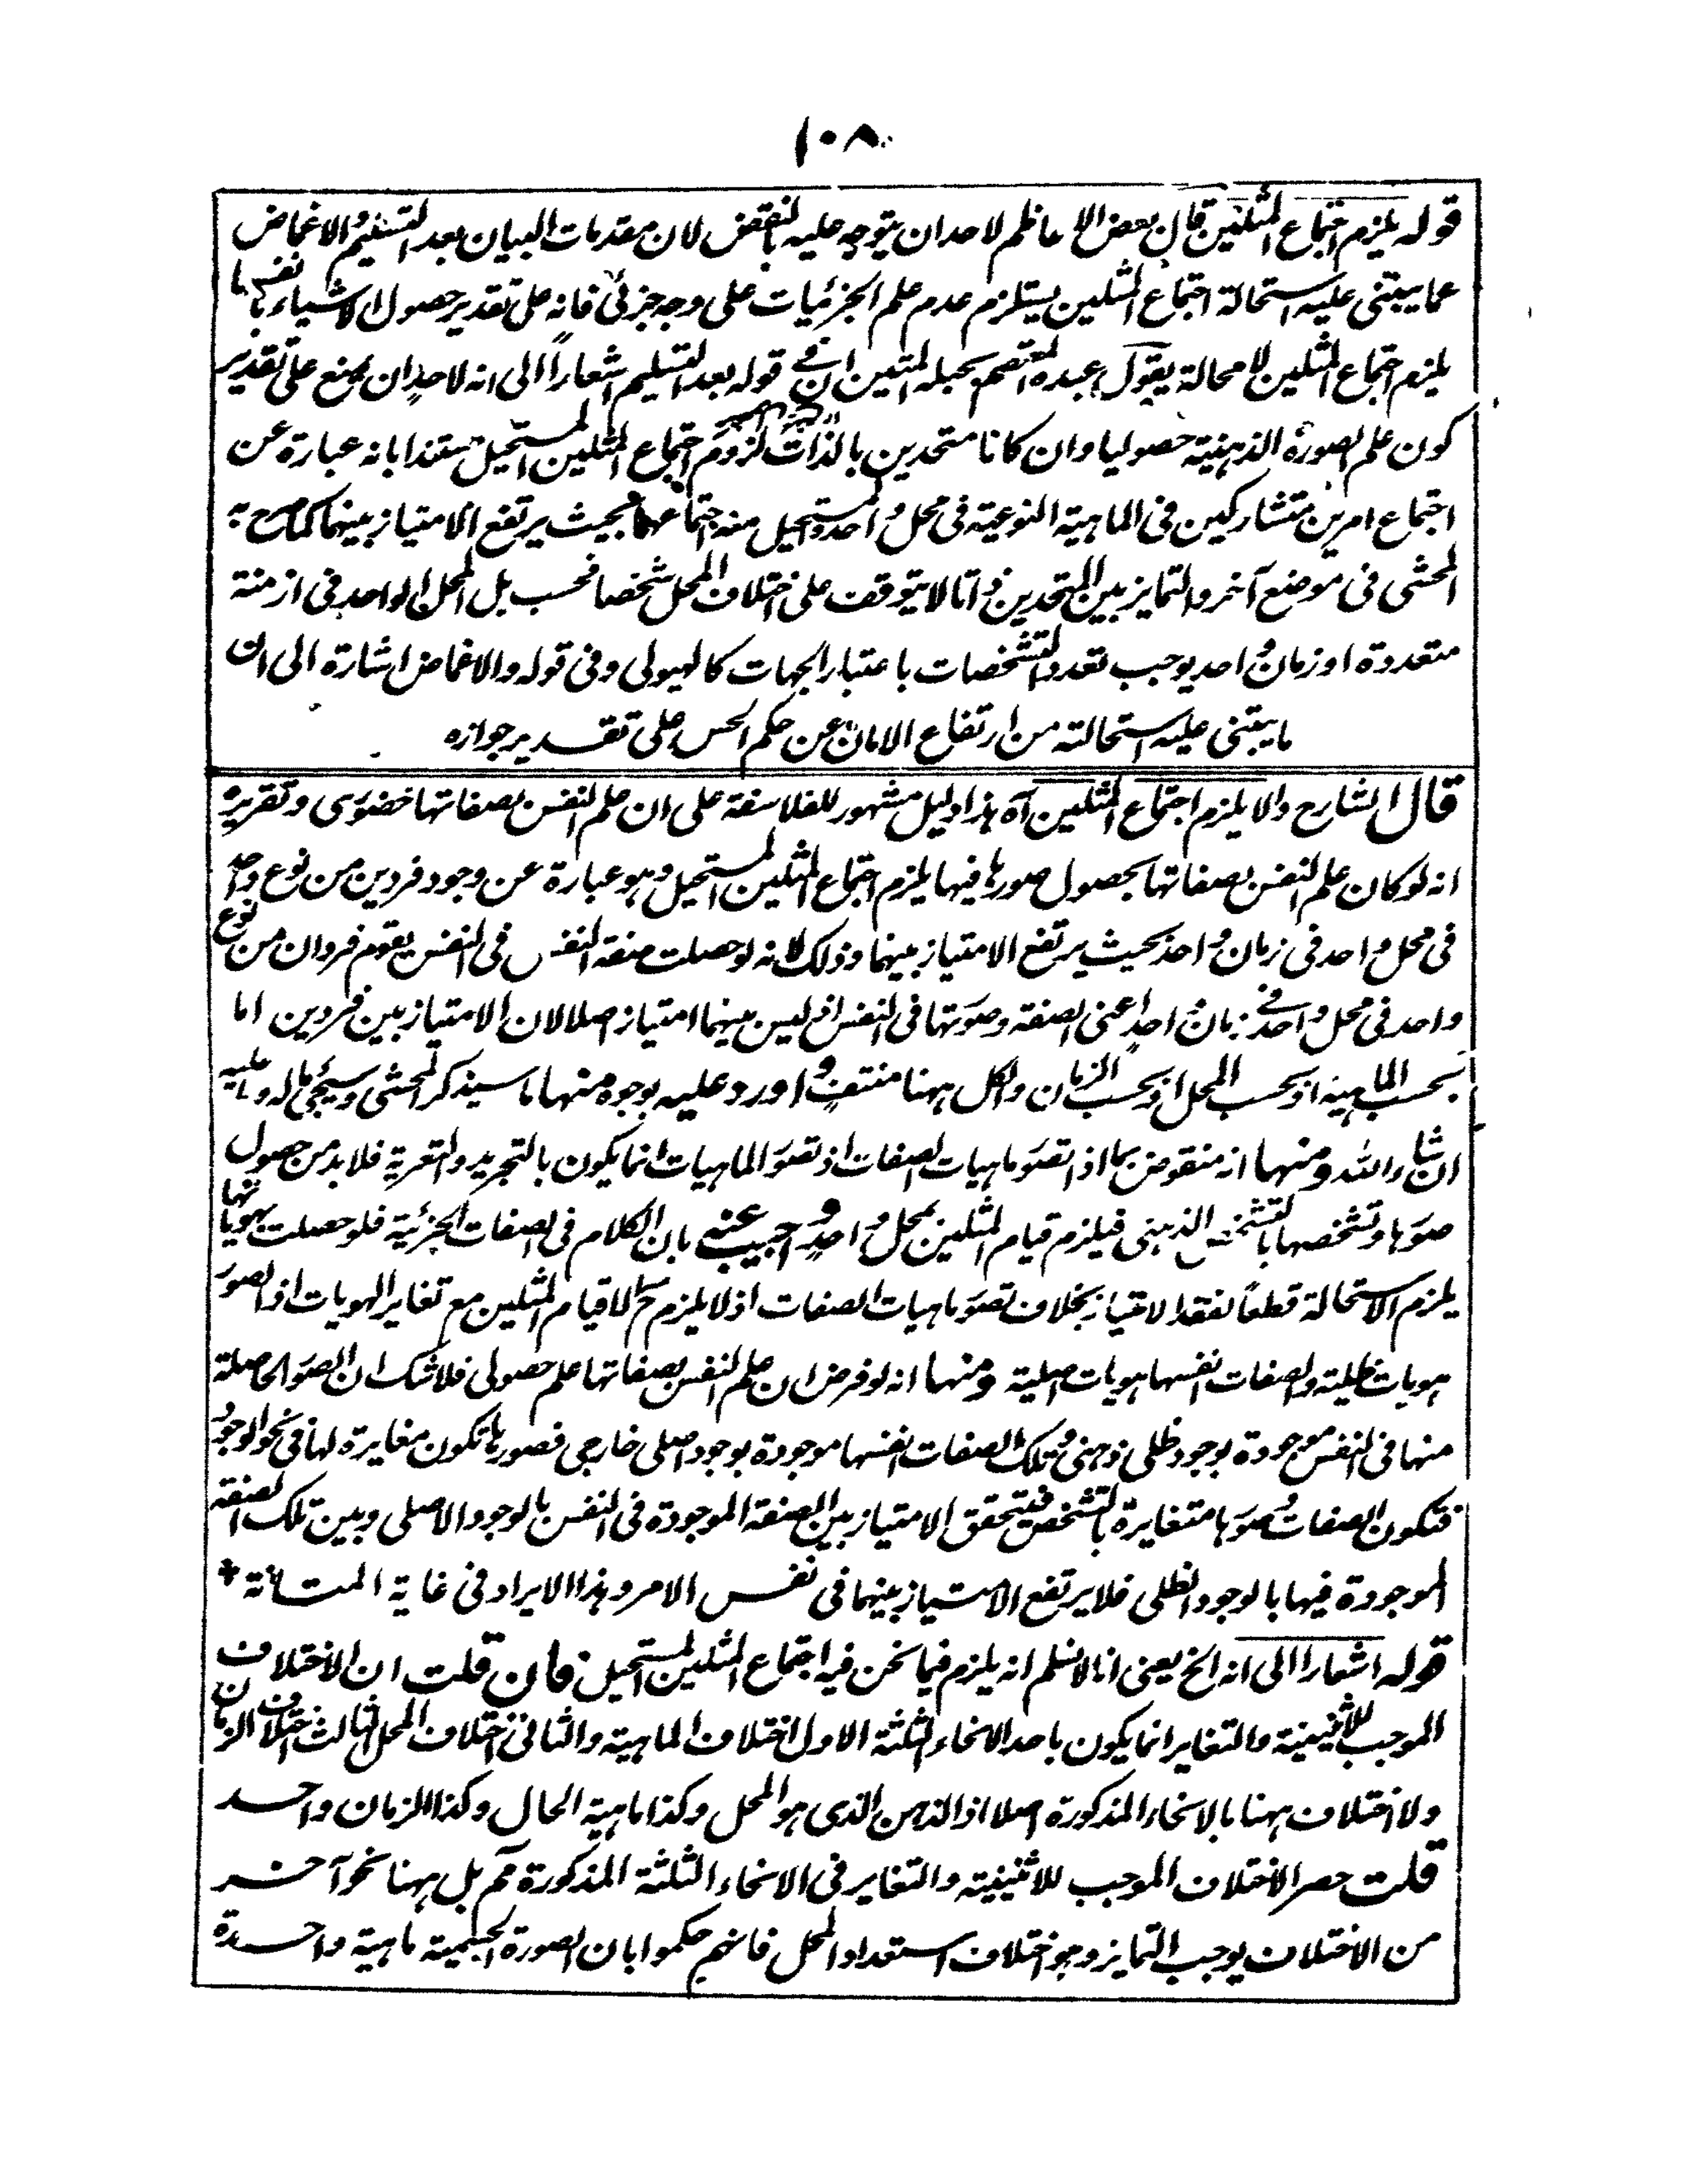 ١٠٨
قوله يلزم اجتماع المثلين قال بعض الاعاظم لاحد ان يتوجه عليه بالنقض لان مقدمات البيان بعد التسليم والاغماض
عما يبتنى عليه استحالة اجتماع المثلين يستلزم عدم علم الجزئيات على وجه جزئى فانه على تقدير حصول الاشياء بانفسها
يلزم اجتماع المثلين لا محالة يقول عبده المعتصم بحبله المتين ان فى قوله بعد التسليم اشعاراً الى انه لاحدٍ ان يمنع على تقدير
كون علم الصورة الذهنية حصوليا وان كانا متحدين بالذات لزوم اجتماع المثلين المستحيل مستندا بانه عبارة عن
اجتماع امرين متشاركين فى الماهية النوعية فى محل واحد والمستحيل منه اجتماعهما بحيث يرتفع الامتياز بينهما كما صرح به
المحشى فى موضع آخر والتمايز بين المتحدين ذاتا لا يتوقف على اختلاف المحل شخصا فحسب بل المحل الواحد فى ازمنة
متعددة او زمان واحد يوجب تعدد التشخصات باعتبار الجهات كالهيولى وفى قوله والاغماض اشارة الى ان
ما يبتنى عليه استحالته من ارتفاع الامان عن حكم الحس على تقدير جوازه
قال الشارح والا يلزم اجتماع المثلين آه هذا دليل مشهور للفلاسفة على ان علم النفس بصفاتها حضورى وتقريره
انه لو كان علم النفس بصفاتها بحصول صورها فيها يلزم اجتماع المثلين المستحيل وهو عبارة عن وجود فردين من نوع واحد
فى محل واحد فى زمان واحد بحيث يرتفع الامتياز بينهما وذلك لانه لو حصلت صفة النفس فى النفس يقوم فردان من نوع
واحد فى محل واحد فى زمان واحدٍ اعنى الصفة وصورتها فى النفس اذ ليس بينهما امتياز اصلا لان الامتياز بين فردين اما
بحسب الماهية او بحسب المحل او بحسب الزمان والكل ههنا منتفٍ واورد عليه بوجوه منها ما سيذكر المحشى وسيجئ ما له وما عليه
ان شاء الله ومنها انه منقوض بما اذا تصور ماهيات الصفات اذ تصور الماهيات انما يكون بالتجريد والتعرية فلا بد من حصول
صورها وتشخصها بالتشخص الذهنى فيلزم قيام المثلين بمحل واحدٍ واجيب عنه بان الكلام فى الصفات الجزئية فلو حصلت بهوياتها
يلزم الاستحالة قطعاً لفقد الامتياز بخلاف تصور ماهيات الصفات اذ لا يلزم ح الا قيام المثلين مع تغاير الهويات اذ الصور
هويات ظلية والصفات انفسها هويات اصلية ومنها انه لو فرض ان علم النفس بصفاتها علم حصولى فلا شك ان الصور الحاصلة
منها فى النفس موجودة بوجود ظلى ذهنى وتلك الصفات انفسها موجودة بوجود اصلى خارجى فصورها تكون مغايرة لها فى نحو الوجود
فتكون الصفات وصورها متغايرة بالتشخص فيتحقق الامتياز بين الصفة الموجودة فى النفس بالوجود الاصلى وبين تلك الصفة
الموجودة فيها بالوجود الظلى فلا يرتفع الامتياز بينهما فى نفس الامر وهذا الايراد فى غاية المتانة *
قوله اشعارا الى انه الخ يعنى انا لا نسلم انه يلزم فيما نحن فيه اجتماع المثلين المستحيل فان قلت ان الاختلاف
الموجب للاثنينية والتغاير انما يكون باحد الانحاء الثلثة الاول اختلاف الماهية والثانى اختلاف المحل الثالث اختلاف الزمان
ولا اختلاف ههنا بالانحاء المذكورة اصلا اذ الذهن الذى هو المحل وكذا ماهية الحال وكذا الزمان واحد
قلت حصر الاختلاف الموجب للاثنينية والتغاير فى الانحاء الثلثة المذكورة مم بل ههنا نحو آخر
من الاختلاف يوجب التمايز وهو اختلاف استعداد المحل فانهم حكموا بان الصورة الجسمية ماهية واحدة